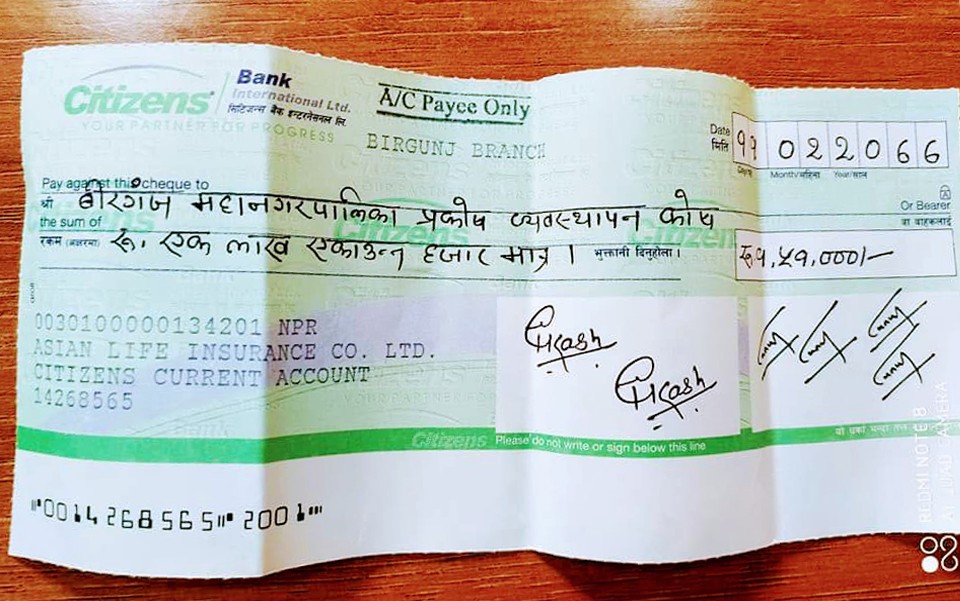 Citizens Bank International Ltd.
सिटिजन्स बैंक इन्टरनेसनल लि.
YOUR PARTNER FOR PROGRESS
A/C Payee Only
BIRGUNJ BRANCH
Date
मिति
११ ०२२०६६
Month/महिना Year/साल
Pay against this cheque to
श्री बीरगंज महानगरपालिका प्रकोप व्यवस्थापन कोष
Or Bearer
वा वाहकलाई
the sum of
रकम (अक्षरमा) रू. एक लाख एकाउन्न हजार मात्र । भुक्तानी दिनुहोला ।
रू १,५१,०००/-
00301000000134201 NPR
ASIAN LIFE INSURANCE CO. LTD.
CITIZENS CURRENT ACCOUNT
14268565
Prkash
Prkash
Citizens Please do not write or sign below this line
0014268565 2001
REDMI NOTE 8
AI QUAD CAMERA